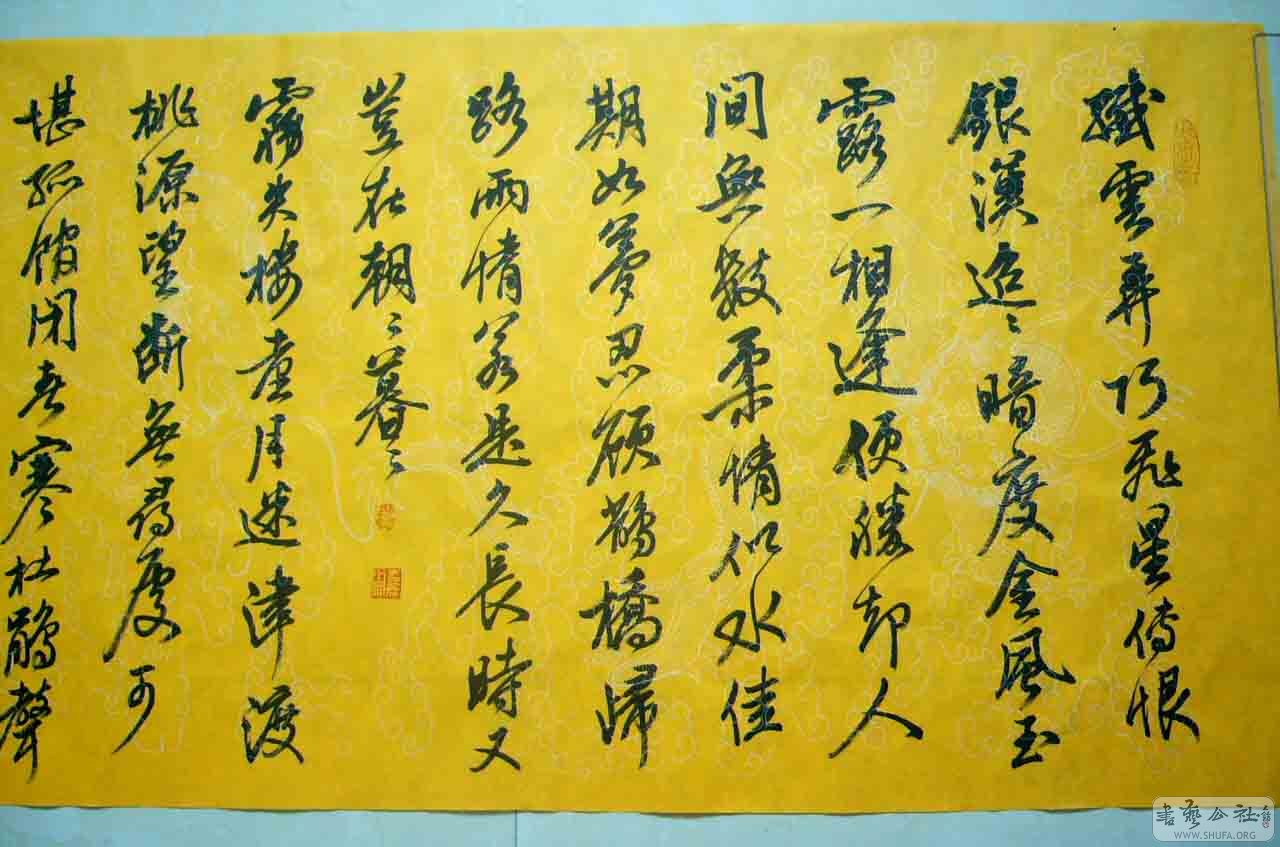 纖雲弄巧飛星傳恨
銀漢迢〻暗度金風玉
露一相逢便勝却人
間無數柔情似水佳
期如夢忍顧鵲橋歸
路兩情若是久長時又
豈在朝〻暮〻
霧失樓臺月迷津渡
桃源望斷無尋處可
堪孤館閉春寒杜鵑聲
書藝公社
WWW.SHUFA.ORG